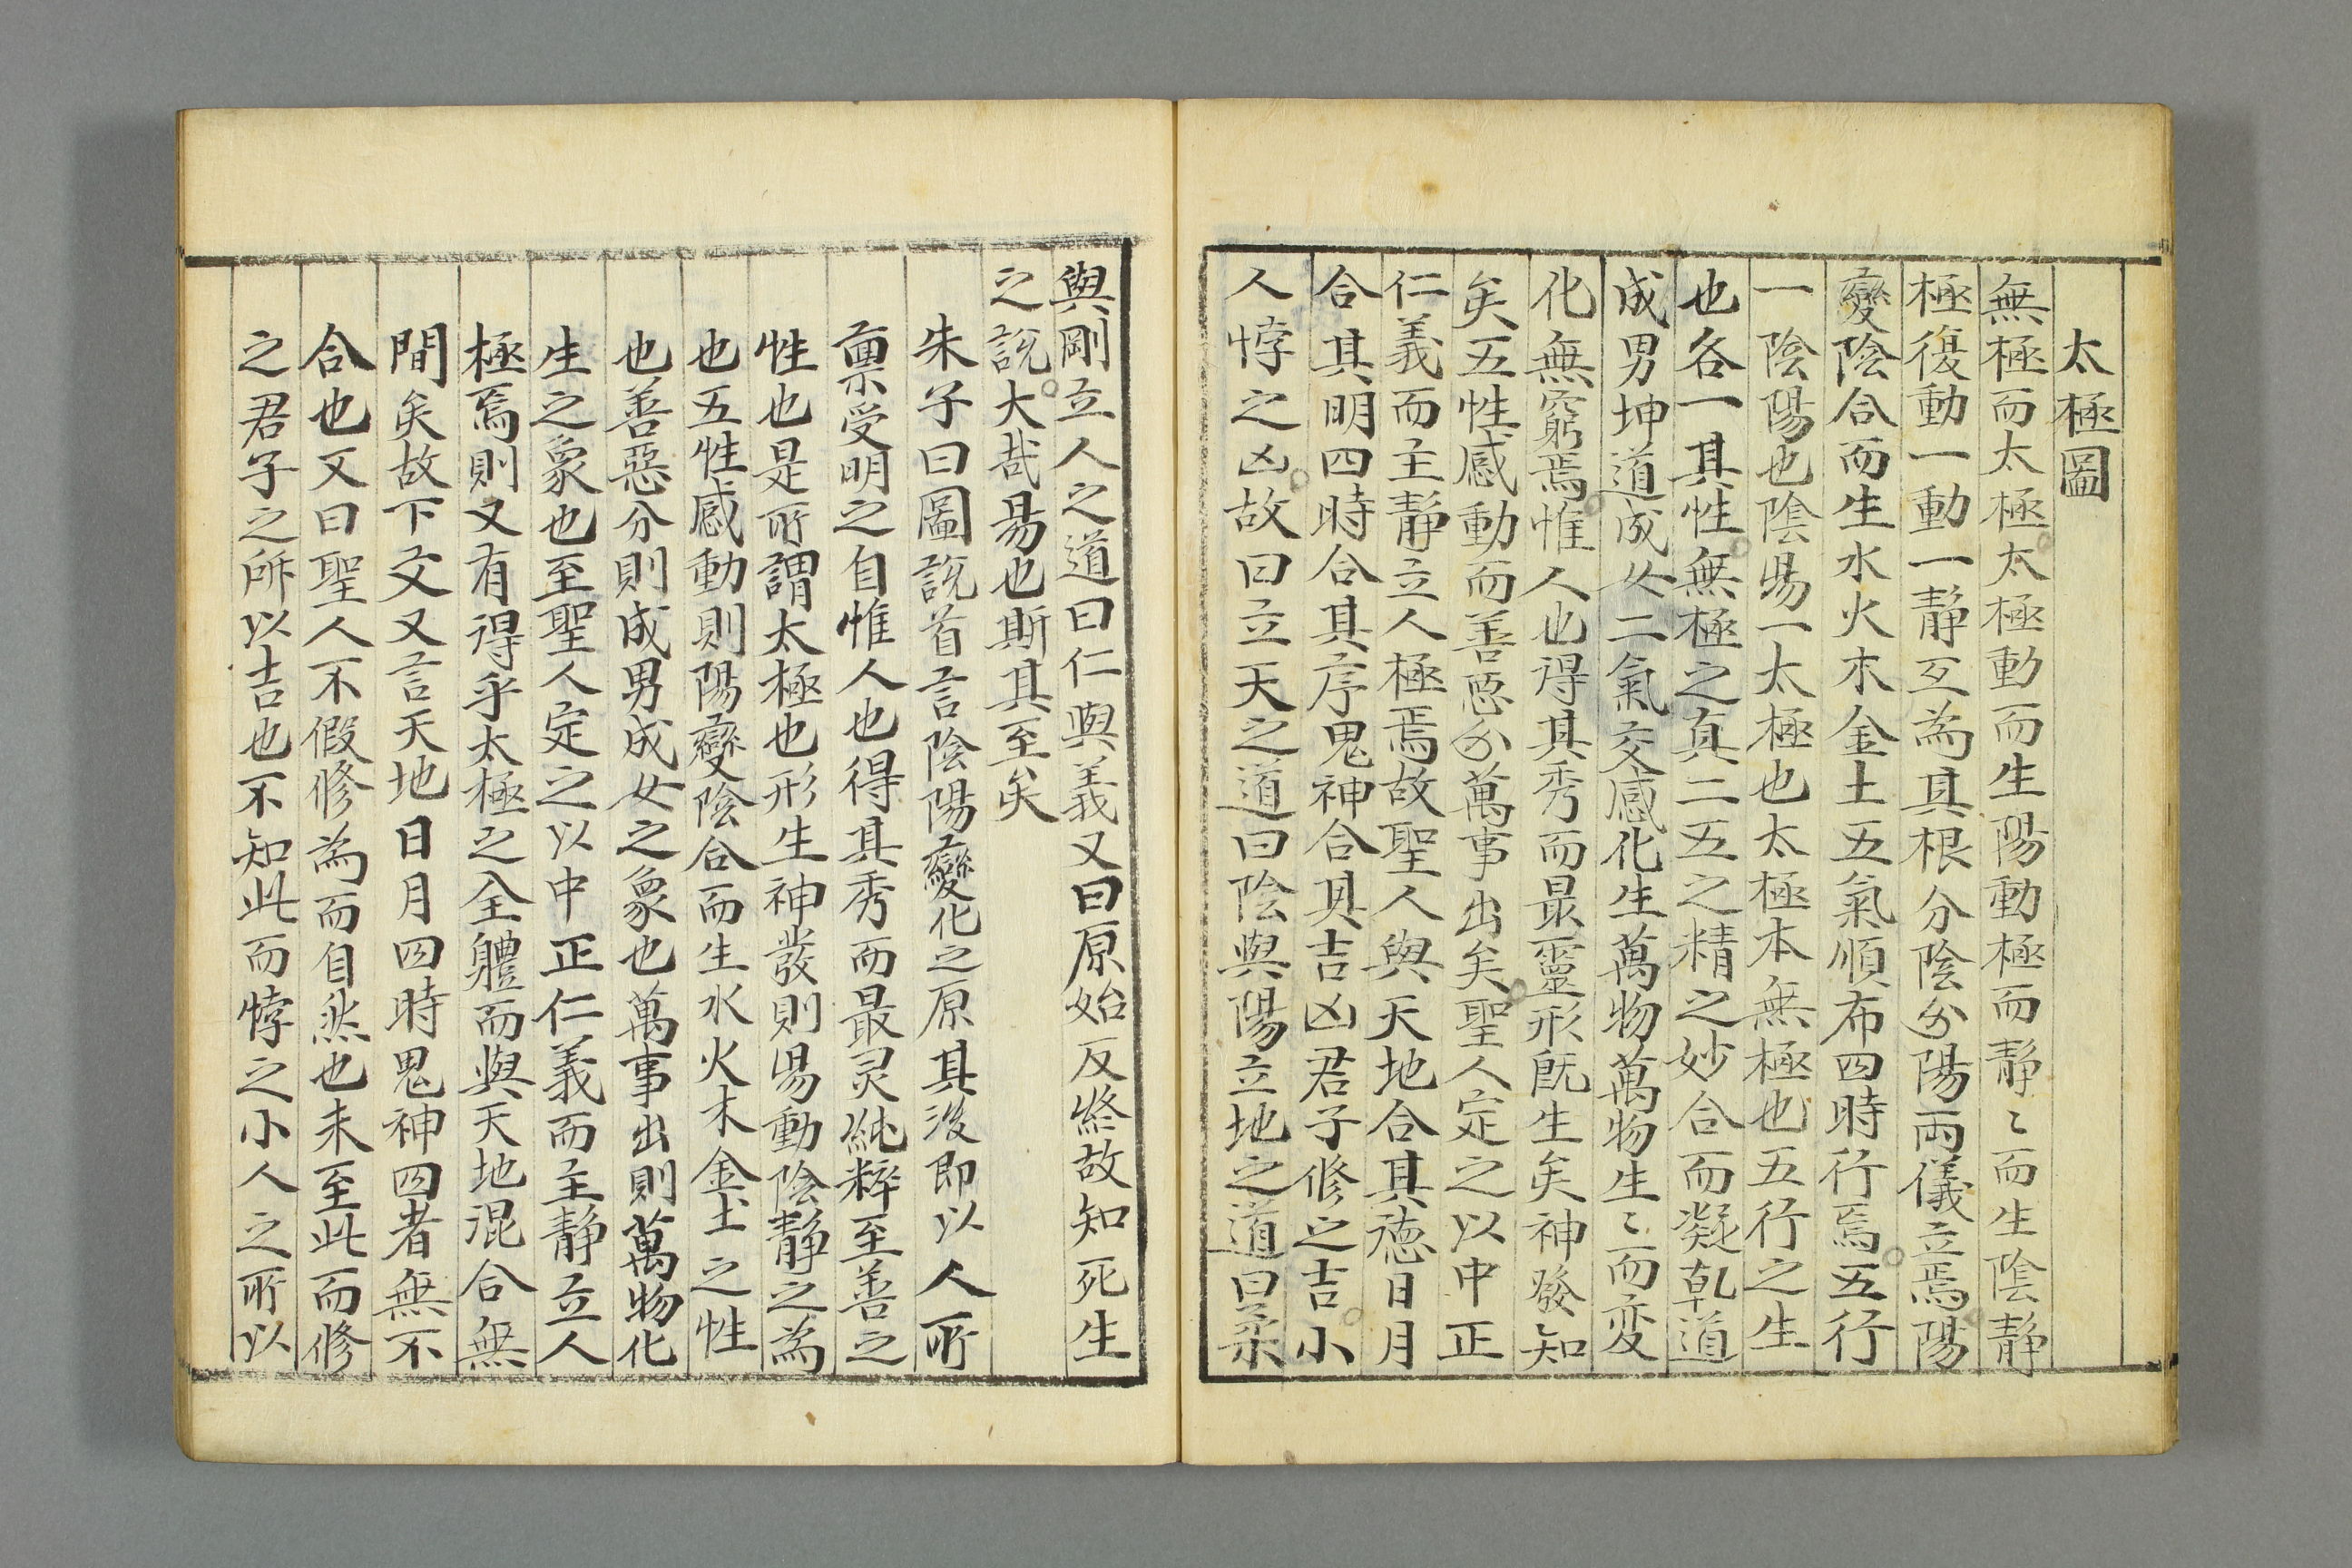 太極圖
無極而太極太極動而生陽動極而靜〻而生陰靜
極復動一動一靜互為其根分陰分陽兩儀立焉陽
變陰合而生水火木金土五氣順布四時行焉五行
一陰陽也陰陽一太極也太極本無極也五行之生
也各一其性無極之真二五之精之妙合而凝乾道
成男坤道成女二氣交感化生萬物萬物生〻而変
化無窮焉惟人也得其秀而最靈形既生矣神發知
矣五性感動而善惡分萬事出矣聖人定之以中正
仁義而主靜立人極焉故聖人與天地合其德日月
合其明四時合其序鬼神合其吉凶君子修之吉小
人悖之凶故曰立天之道曰陰與陽立地之道曰柔
與剛立人之道曰仁與義又曰原始反終故知死生
之說大哉易也斯其至矣
朱子曰圖說首言陰陽變化之原其後即以人所
禀受明之自惟人也得其秀而最灵純粹至善之
性也是所謂太極也形生神發則陽動陰靜之為
也五性感動則陽變陰合而生水火木金土之性
也善惡分則成男成女之象也萬事出則萬物化
生之象也至聖人定之以中正仁義而主靜立人
極焉則又有得乎太極之全體而與天地混合無
間矣故下文又言天地日月四時鬼神四者無不
合也又曰聖人不假修為而自然也未至此而修
之君子之所以吉也不知此而悖之小人之所以